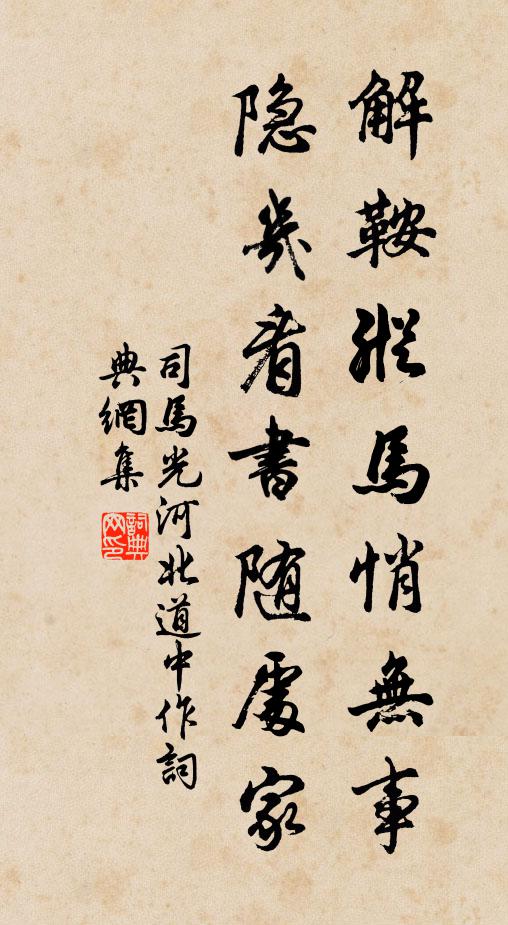 解鞍縱馬悄無事
隐几看書随處家
司馬光河北道中作詞
典網集
詞典
网印